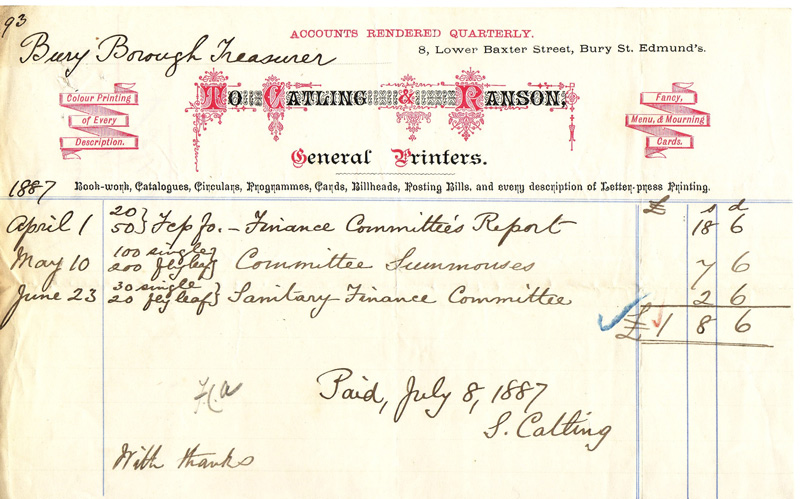 93
ACCOUNTS RENDERED QUARTERLY.
Bury Borough Treasurer
8, Lower Baxter Street, Bury St. Edmund's.
Colour Printing
of Every
Description.
TO CATLING & RANSON,
Fancy,
Menu, & Mourning
Cards.
General Printers.
1887
Book-work, Catalogues, Circulars, Programmes, Cards, Billheads, Posting Bills, and every description of Letter-press Printing.
£ s d
April 1 20 50 } Fcp fo. - Finance Committee's Report 18 6
May 10 100 single 200 fly leaf } Committee Summonses 7 6
June 23 30 single 20 fly leaf } Sanitary Finance Committee 2 6
£1 8 6
Paid, July 8, 1887
S. Catling
With thanks